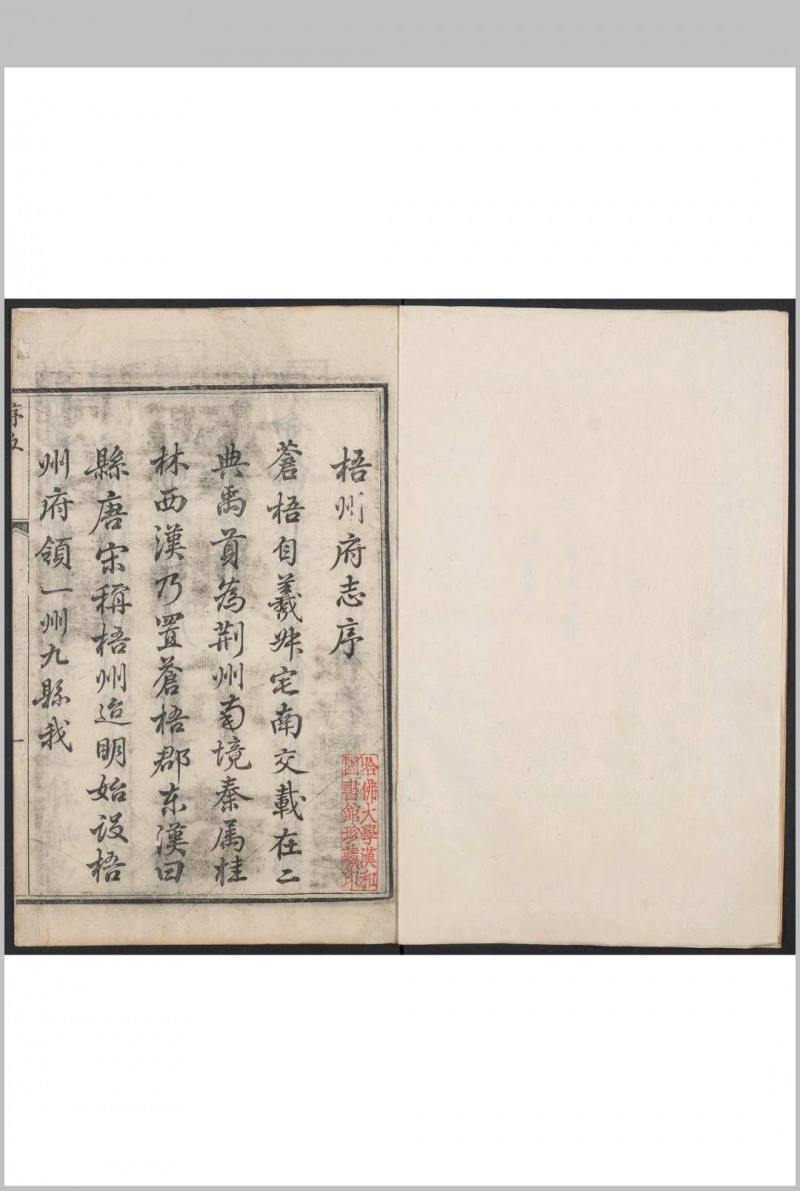 梧州府志序
蒼梧自羲叔宅南交載在二
典禹貢為荆州南境秦属桂
林西漢乃置蒼梧郡東漢曰
縣唐宋稱梧州迨明始設梧
州府領一州九縣我
序
哈佛大學漢和
圖書館珍藏印